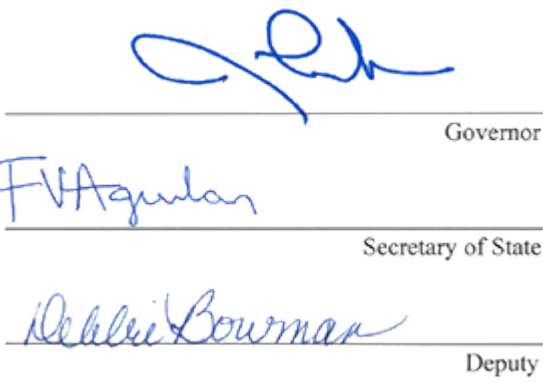 Governor
FVAguilar
Secretary of State
Debbie Bowman
Deputy